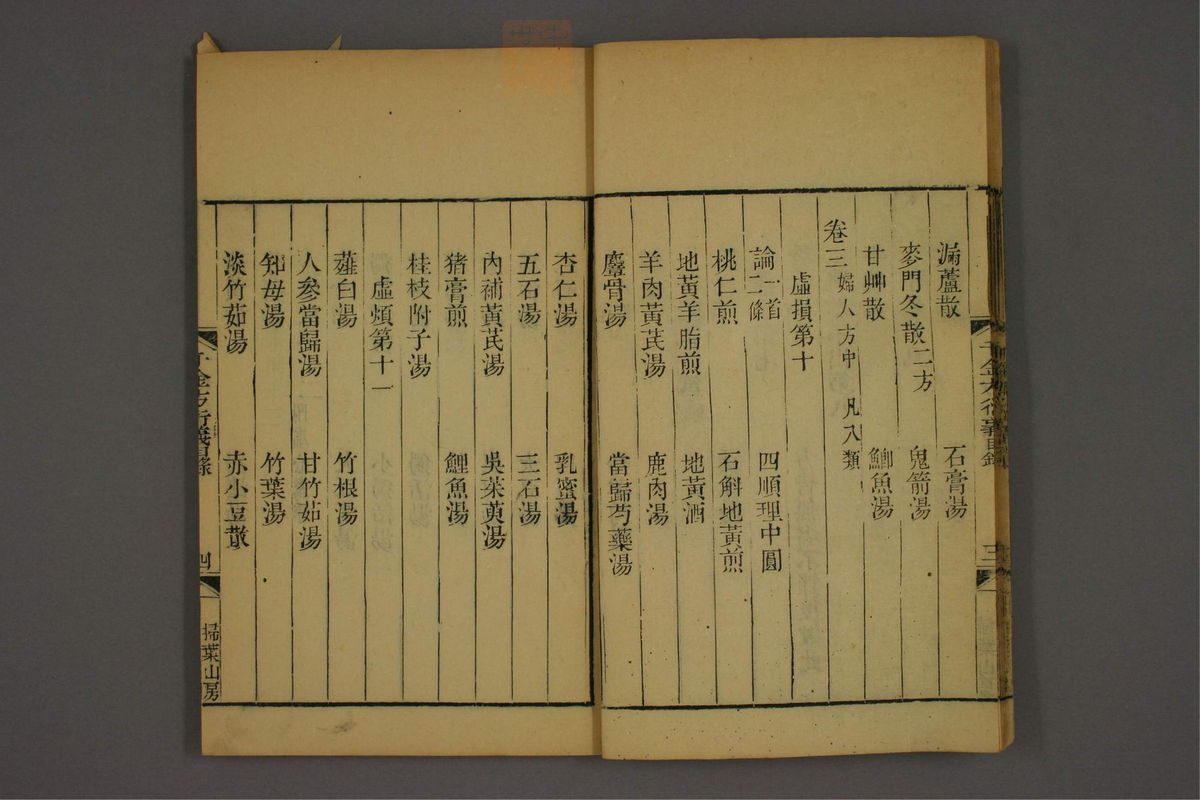 漏蘆散 石膏湯
麥門冬散二方 鬼箭湯
甘艸散 鯽魚湯
卷三 婦人方中 凡八類
虛損第十
論一首二條 四順理中圓
桃仁煎 石斛地黃煎
地黃羊脂煎 地黃酒
羊肉黃芪湯 鹿肉湯
麞骨湯 當歸芍藥湯
杏仁湯 乳蜜湯
五石湯 三石湯
內補黃芪湯 吳茱萸湯
猪膏煎 鯉魚湯
桂枝附子湯
虛煩第十一
薤白湯 竹根湯
人參當歸湯 甘竹茹湯
知母湯 竹葉湯
淡竹茹湯 赤小豆散
千金方衍義目錄 三
千金方衍義目錄 四 掃葉山房